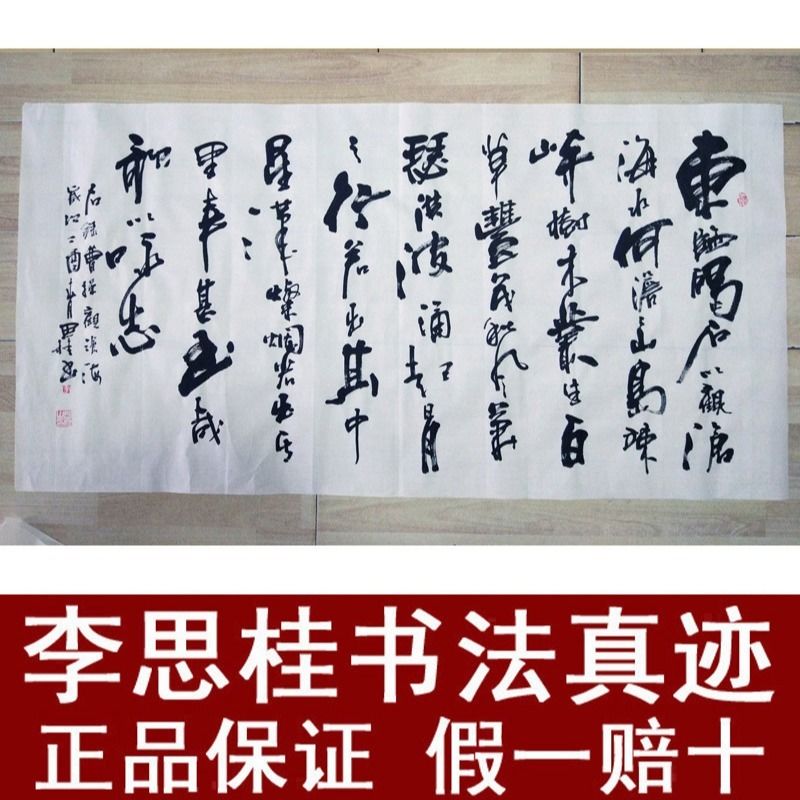 東臨碣石以觀滄
海水何澹山島竦
峙樹木叢生百
草豐茂秋风萧
瑟洪波涌起日月
之行若出其中
星漢燦爛若出其
里幸甚至哉
歌以咏志
右錄曹操觀滄海
李思桂书法真迹
正品保证 假一赔十